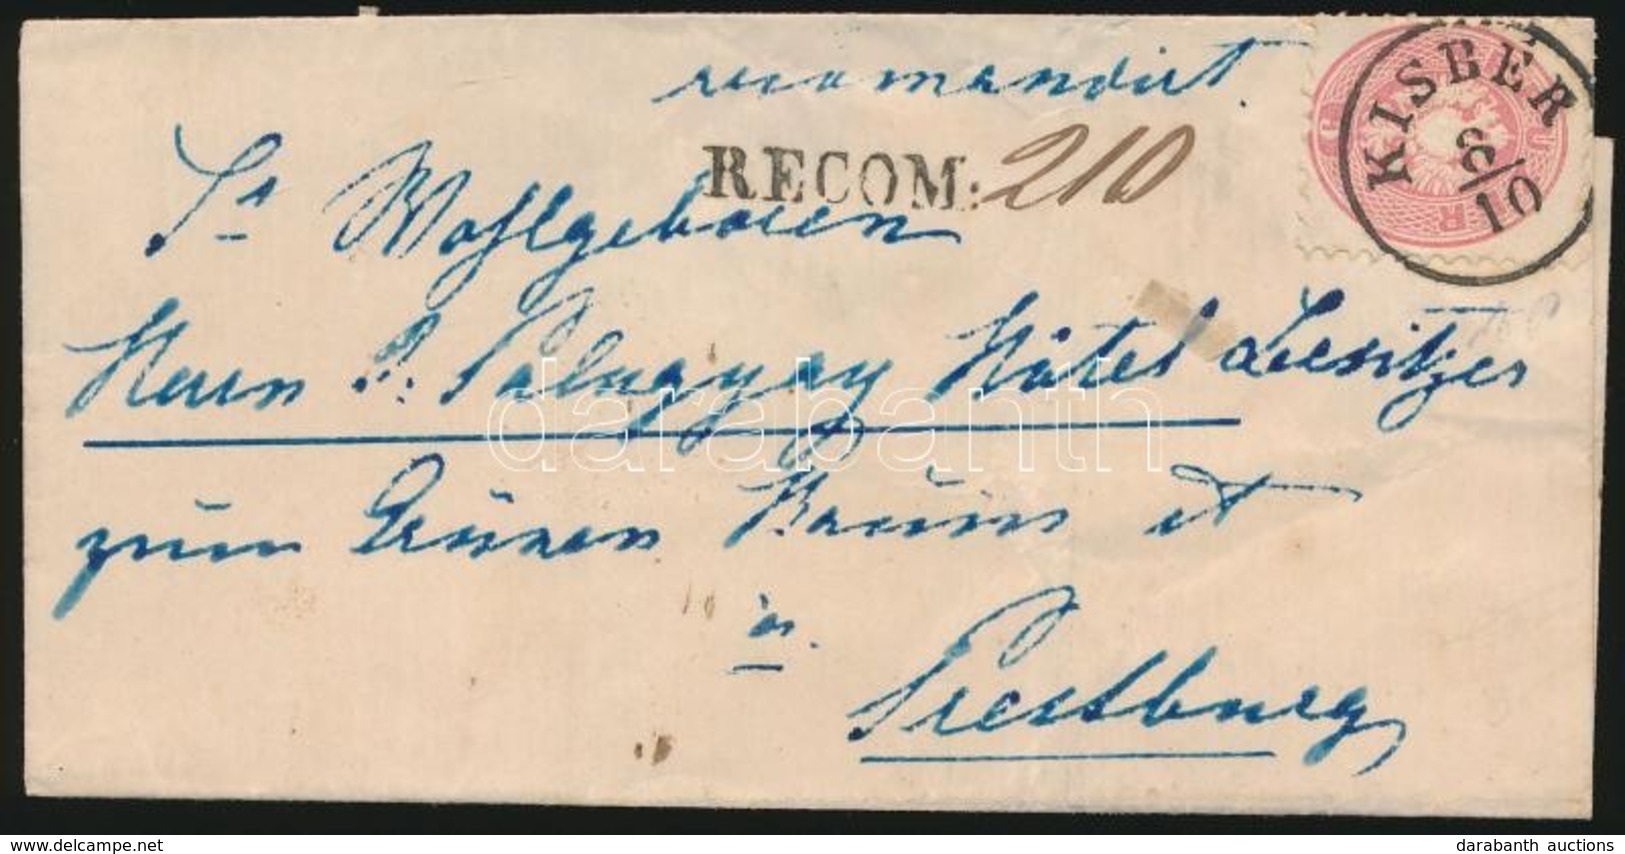 recomandirt.
KISBÉR
8/10
RECOM: 210
Sr Wohlgeboren
Herrn P. Palugyay Hôtel Besitzer
zum Grünen Baum et
in
Pressburg
darabanth
www.delcampe.net
darabanth auctions